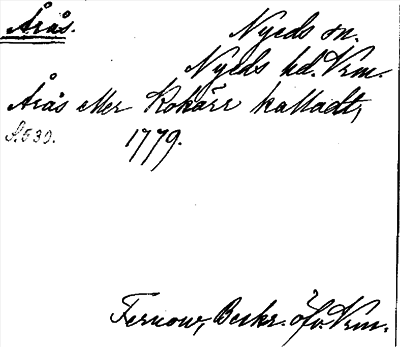 Årås.
Nyeds sn.
Nyeds hd. Vrm.
Årås eller Rokärr kalladt,
S. 539. 1779.
Fernow, Beskr. öfv. Vrm.